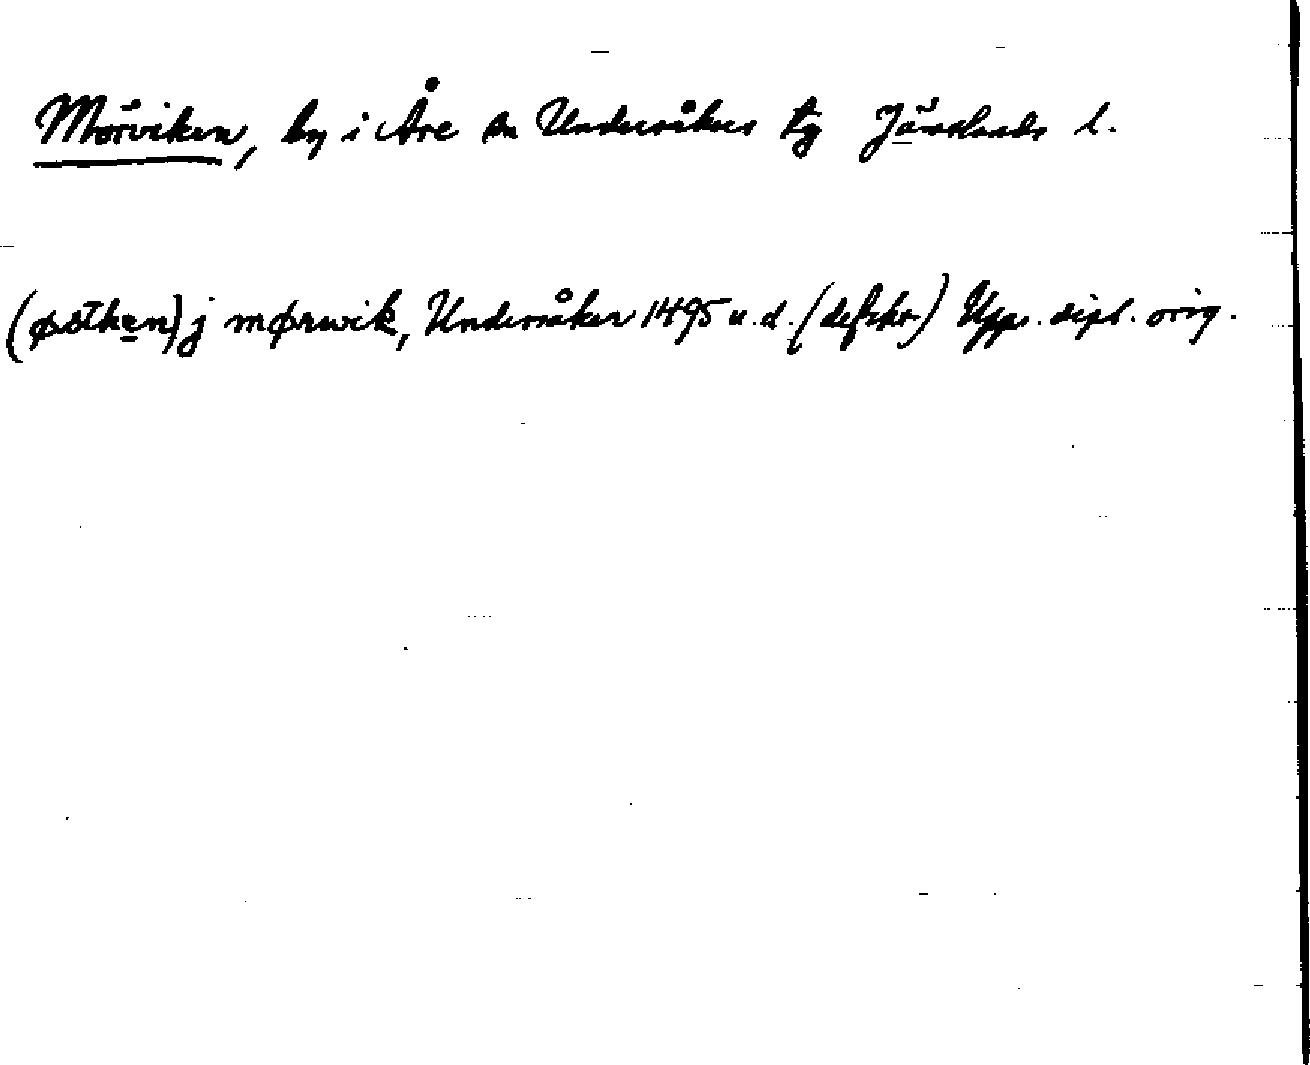 Mörviken, by i Åre sn Undersåkers tg Jämtlands l.
(østhen) j mørwik, Undersåker 1495 u.d. (defekt) Upps. dipl. orig.